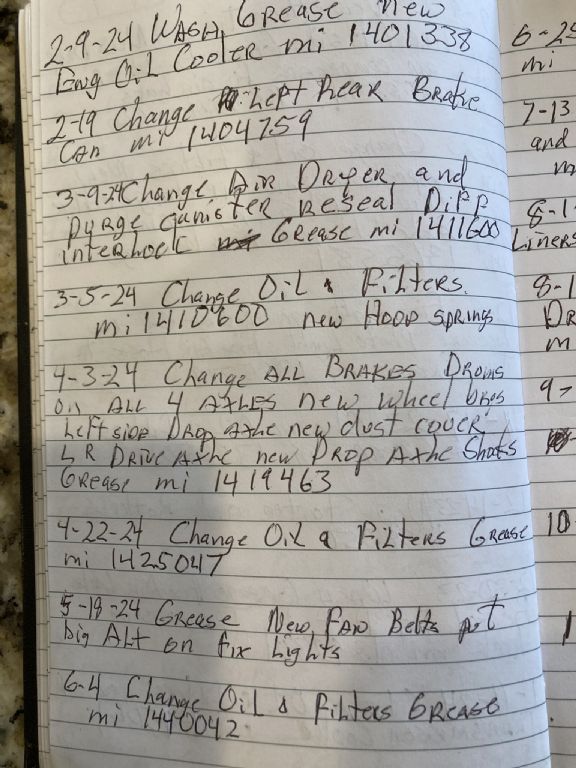 2-9-24 WASH, GREASE new
Eng OiL COOLER mi 1401338
2-19 Change LEFT REAR BRAKE
CAN mi 1404759
3-9-24 Change AIR DRYER, and
purge canister RESEAL DIFF
interlock GREASE mi 1411600
3-5-24 Change OiL & FiLTERS.
mi 1410600 new HOOD SPRINGS
4-3-24 Change ALL BRAKES DRUMS
On ALL 4 AXLES new wheel
Left SIDE DROP AXLE new dust cover
LR DRIVE AXLE new DROP AXLE Shocks
GREASE mi 1419463
4-22-24 Change OiL & FiLTERS GREASE
mi 1425047
5-19-24 GREASE New FAN Belts put
big ALT on fix Lights
6-4 Change OiL & FiLTERS GREASE
mi 1440042
6-25
mi
7-13
and
m
8-1
Liners
8-1
DR
m
9-
10